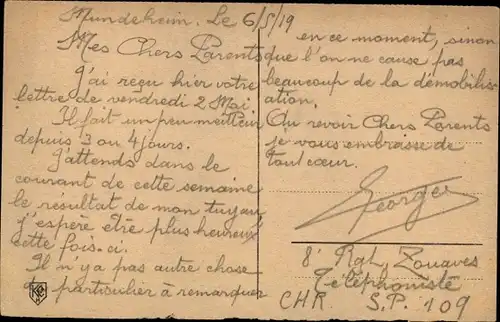 Mundeheim. Le 6/5/19
Mes Chers Parents
J'ai reçu hier votre
lettre de vendredi 2 Mai
Il fait un peu meilleur
depuis 3 ou 4 jours.
J'attends dans le
courant de cette semaine
le résultat de mon tuyau
j'espère être plus heureux
cette fois-ci.
Il n'y a pas autre chose
de particulier à remarquer
en ce moment, sinon
que l'on ne cause pas
beaucoup de la démobilis-
ation.
Au revoir Chers Parents
je vous embrasse de
tout cœur.
Georges
8e Rgt Zouaves
Téléphoniste
CHR S.P. 109